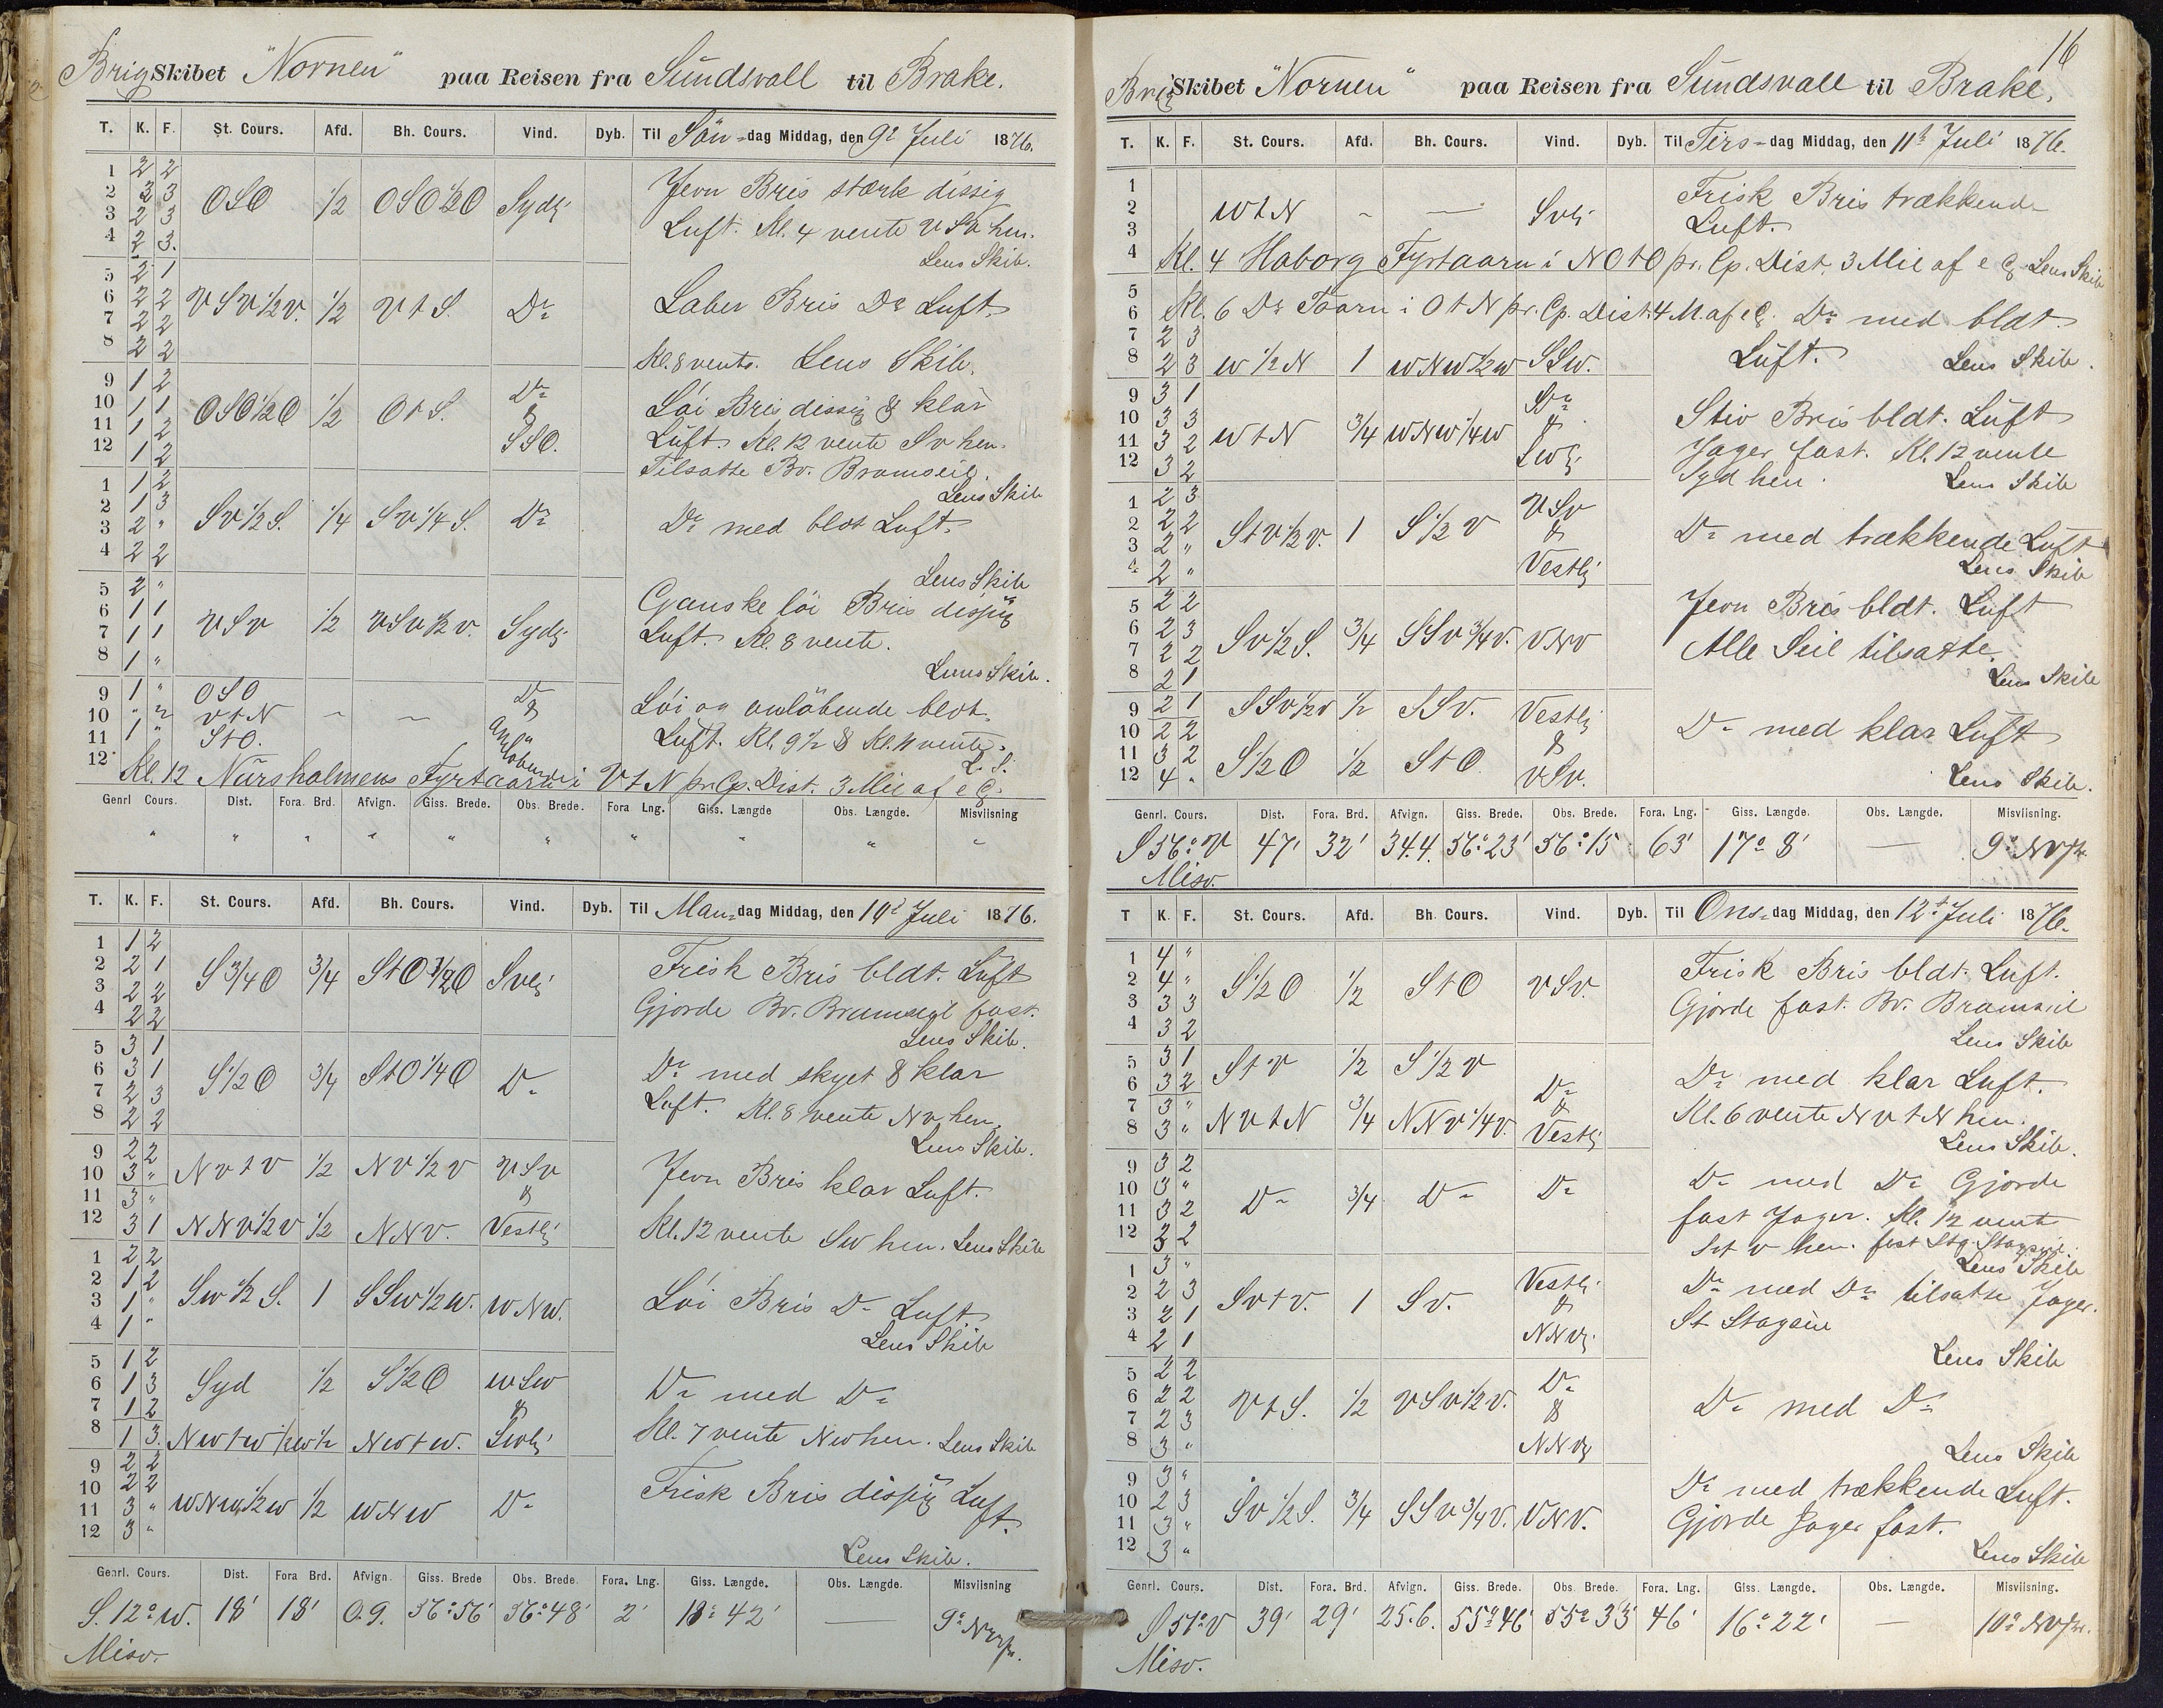 Brig Skibet "Nornen" paa Reisen fra Sundsvall til Brake.
T. K. F. St. Cours. Afd. Bh. Cours. Vind. Dyb. Til Søn-dag Middag, den 9de Juli 1876.
1 2 2
2 3 3 OSO 1/2 OSO1/2O Sydlig Jevn Bris stærk dissig
3 2 3 Luft. Kl. 4 vente VSV hen.
4 2 3. Lens Skib.
5 2 1
6 2 2 VSV1/2V. 1/2 VtS. Do Laber Bris Do Luft.
7 2 2
8 2 2 Kl. 8 vente. Lens Skib.
9 1 2 Do
10 1 1 OSO1/2O 1/2 OtS. & Løi Bris dissig & klar
11 1 2 SSO. Luft. Kl. 12 vente Sv hen.
12 1 2 Tilsatte Bv. Bramseil.
1 1 2 Lens Skib
2 1 3 Sv1/2S. 1/4 Sv1/4S. Do Do med blot Luft.
3 2 "
4 2 2 Lens Skib
5 2 " Ganske løi Bris dissig
6 1 1 VSV 1/2 VSV1/2V. Sydlig Luft. Kl. 8 vente.
7 1 1
8 1 " Lens Skib.
9 1 " OSO Do Løi og omløbende blot.
10 " 2 VtN - - & Luft. Kl. 9 1/2 & Kl. 11 vente.
11 1 " StO. omløbende L. S.
12 Kl. 12 Närsholmens Fyrtaarn i VtN pr. Cp. Dist. 3 Mil af e G.
Genrl Cours. Dist. Fora. Brd. Afvign. Giss. Brede. Obs. Brede. Fora Lng. Giss. Længde Obs. Længde. Misviisning
" " " " " " " " " "
T. K. F. St. Cours. Afd. Bh. Cours. Vind. Dyb. Til Man-dag Middag, den 10de Juli 1876.
1 1 2
2 2 1 S3/4O 3/4 StO1/2O Svlig Frisk Bris bldt. Luft
3 2 2 Gjorde Bv. Bramseil fast.
4 2 2 Lens Skib.
5 3 1
6 3 1 S1/2O 3/4 StO1/4O Do Do med skyet & klar
7 2 3 Luft. Kl. 8 vente Nv hen.
8 2 2 Lens Skib.
9 2 2
10 3 " NvtV 1/2 NV1/2V VSV Jevn Bris klar Luft.
11 3 " &
12 3 1 NNV1/2V 1/2 NNV. Vestlig Kl. 12 vente Sw hen. Lens Skib
1 2 2
2 1 2 Sw1/2S. 1 SSw1/2w. wNw. Løi Bris Do Luft
3 1 "
4 1 " Lens Skib
5 1 2
6 1 3 Syd 1/2 S1/2O wSw Do med Do
7 1 2 &
8 1 3. Nwtw1/2w 1/2 Nwtw. Swlig Kl. 7 vente Nw hen. Lens Skib
9 2 2
10 2 2 Frisk Bris dissig Luft.
11 3 " wNw1/2w 1/2 wNw Do
12 3 " Lens Skib.
Genrl. Cours. Dist. Fora Brd. Afvign. Giss. Brede Obs. Brede Fora. Lng. Giss. Længde. Obs. Længde. Misviisning
S. 12° w. 18' 18' 0.9. 56° 56' 56° 48' 2' 18° 42' — 9° Nvpr.
Misv.
16
Brig Skibet "Nornen" paa Reisen fra Sundsvall til Brake.
T. K. F. St. Cours. Afd. Bh. Cours. Vind. Dyb. Til Tirs-dag Middag, den 11te Juli 1876.
1 Frisk Bris trækkende
2 wtN - — Svlig Luft.
3
4 Kl. 4 Haborg Fyrtaarn i NOtO pr. Cp. Dist. 3 Mil af e G. Lens Skib
5
6 Kl. 6 Do Taarn i OtN pr. Cp. Dist. 4 M. af e G. Do med bldt.
7 2 3
8 2 3 w1/2N 1 wNw1/2w SSw. Luft. Lens Skib.
9 3 1 Do
10 3 3 wtN 3/4 wNw1/4w & Stiv Bris bldt. Luft
11 3 2 Swlig Jager fast. Kl. 12 vente
12 3 2 Syd hen. Lens Skib
1 2 3 VSv
2 2 2 StV1/2V. 1 S1/2V & Do med trækkende Luft
3 2 "
4 2 " Vestlig Lens Skib
5 2 2 Jevn Bris bldt. Luft
6 2 3 Sv1/2S. 3/4 SSv3/4v. VNV Alle Seil tilsatte.
7 2 2
8 2 1 Lens Skib
9 2 1 SSv1/2v 1/2 SSv. Vestlig
10 2 2 & Do med klar Luft
11 3 2 S1/2O 1/2 StO
12 4 " VSv. Lens Skib.
Genrl. Cours. Dist. Fora. Brd. Afvign. Giss. Brede. Obs. Brede. Fora. Lng. Giss. Længde. Obs. Længde. Misviisning.
S 56° V 47' 32' 34.4. 56° 23' 56° 15 63' 17° 8' — 9° Nvpr.
Misv.
T K. F. St. Cours. Afd. Bh. Cours. Vind. Dyb. Til Ons-dag Middag, den 12te Juli 1876.
1 4 "
2 4 " S1/2O 1/2 StO VSv. Frisk Bris bldt. Luft.
3 3 3 Gjorde fast. Bv. Bramseil
4 3 2 Lens Skib
5 3 1 StV 1/2 S1/2V
6 3 2 Do Do med klar Luft.
7 3 " & Kl. 6 vente NvtN hen.
8 3 " NVtN 3/4 NNV1/4V. Vestlig Lens Skib.
9 3 2
10 3 " Do 3/4 Do Do Do med Do Gjorde
11 3 2 fast Jager. Kl. 12 vente
12 3 2 Svtv hen. fast Stg. Stagseil.
1 3 " Lens Skib
2 2 3 Svtv. 1 Sv. Vestlig Do med Do tilsatte Jager.
3 2 1 & St Stagseil
4 2 1 NNVlig Lens Skib
5 2 2 Do
6 2 2 VtS. 1/2 VSv1/2v. & Do med Do
7 2 3
8 3 " NNVlig Lens Skib
9 3 "
10 2 3 Sv1/2S. 3/4 SSv3/4v. VNV. Do med trækkende Luft.
11 3 " Gjorde Jager fast.
12 3 " Lens Skib
Genrl. Cours. Dist. Fora. Brd. Afvign. Giss. Brede. Obs. Brede. Fora. Lng. Giss. Længde. Obs. Længde. Misviisning.
S 51° V 39' 29' 25.6. 55° 46' 55° 33' 46' 16° 22' — 10° Nvpr.
Misv.